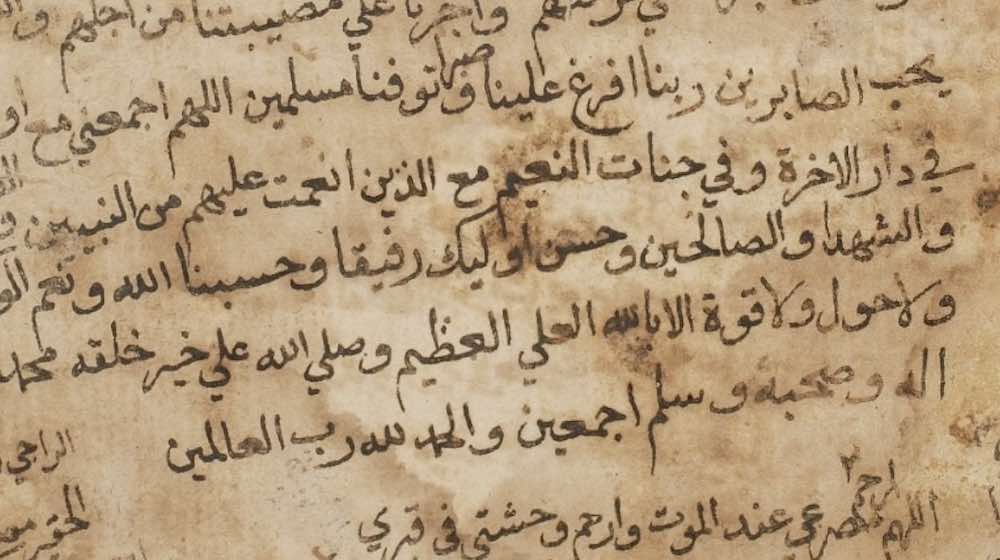 واجرنا علي مصيبتنا من اجلهم
يحب الصابرين ربنا افرغ علينا صبرا وتوفنا مسلمين اللهم اجمعني مع
في دار الاخرة وفي جنات النعيم مع الذين انعمت عليهم من النبيين
والشهدا والصالحين وحسن اوليك رفيقا وحسبنا الله ونعم
ولا حول ولا قوة الا بالله العلي العظيم وصلي الله علي خير خلقه محمد
اله وصحبه وسلم اجمعين والحمد لله رب العالمين
الراجي
اللهم ارحم عند الموت وارحم وحشتي في قبري
الحقير